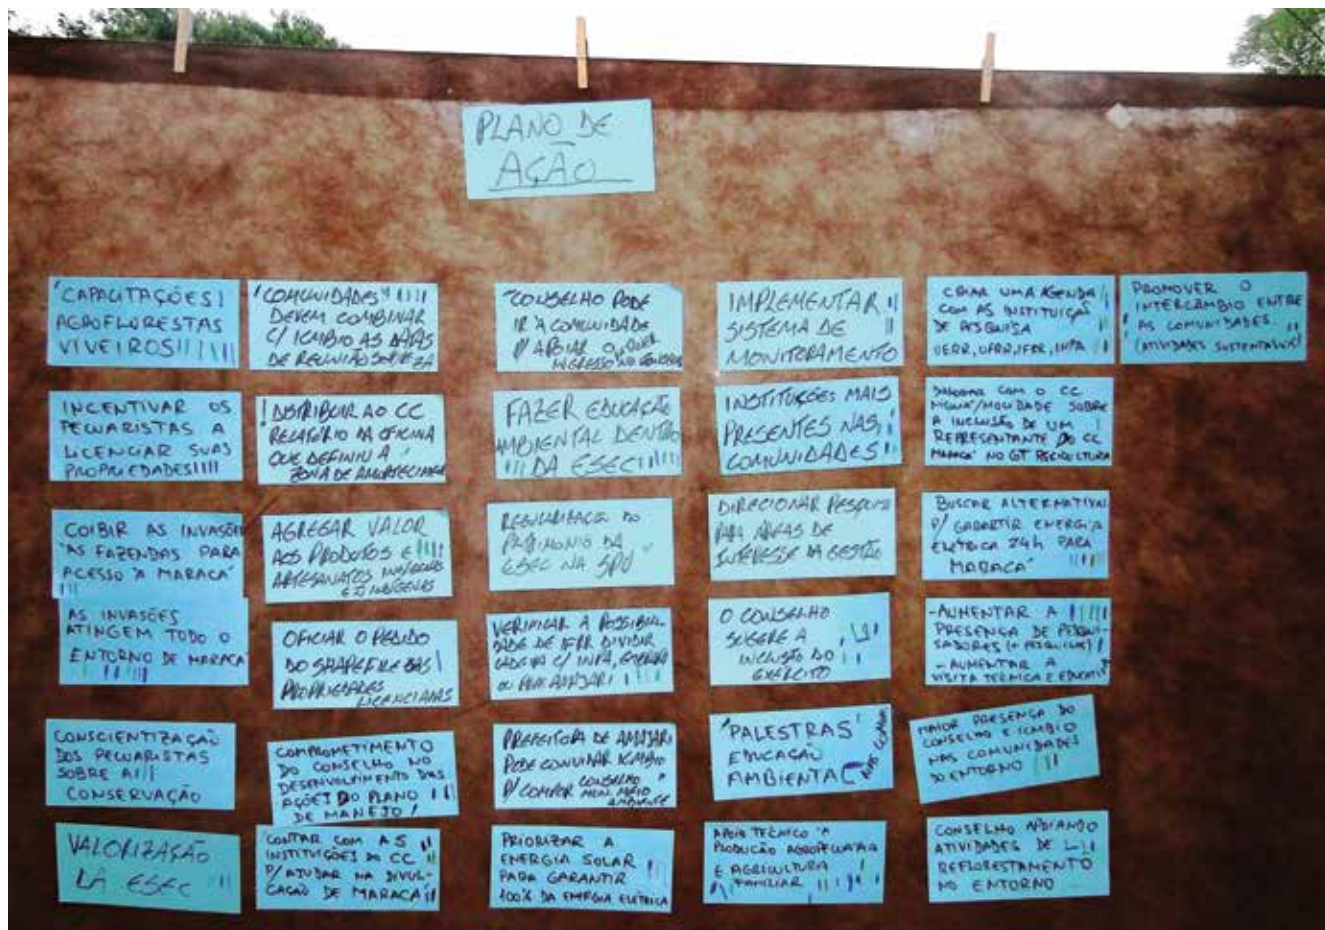 PLANO DE
AÇÃO
CAPACITAÇÕES
AGROFLORESTAS
VIVEIROS
INCENTIVAR OS
PECUARISTAS A
LICENCIAR SUAS
PROPRIEDADES
COIBIR AS INVASÕES
AS FAZENDAS PARA
ACESSO À MARACÁ
AS INVASÕES
ATINGEM TODO O
ENTORNO DE MARACÁ
CONSCIENTIZAÇÃO
DOS PECUARISTAS
SOBRE A
CONSERVAÇÃO
VALORIZAÇÃO
DA ESEC
"COMUNIDADES"
DEVEM COMBINAR
C/ ICMBIO AS DATAS
DE REUNIÃO
DISTRIBUIR AO CC
RELATÓRIO DA OFICINA
QUE DEFINIU A
ZONA DE
AGREGAR VALOR
AOS PRODUTOS E
ARTESANATOS
OFICIAR O PEDIDO
DO SHAPEFILE DAS
PROPRIEDADES
LICENCIADAS
COMPROMETIMENTO
DO CONSELHO NO
DESENVOLVIMENTO DAS
AÇÕES DO PLANO
DE MANEJO
CONTAR COM AS
INSTITUIÇÕES DO CC
P/ AJUDAR NA DIVUL-
GAÇÃO DE MARACÁ
CONSELHO PODE
IR À COMUNIDADE
P/ APOIAR O QUER
INGRESSO NO
FAZER EDUCAÇÃO
AMBIENTAL DENTRO
DA ESEC
REGULARIZAÇÃO DO
PATRIMONIO DA
ESEC NA SPU
VERIFICAR A POSSIBILI-
DADE DE IFRR DIVIDIR
C/ INPA,
OU
PREFEITURA DE AMAJARI
PODE CONVIDAR ICMBIO
P/ COMPOR CONSELHO
MUN. MEIO
AMBIENTE
PRIORIZAR A
ENERGIA SOLAR
PARA GARANTIR
100% DA ENERGIA ELÉTRICA
IMPLEMENTAR
SISTEMA DE
MONITORAMENTO
INSTITUIÇÕES MAIS
PRESENTES NAS
COMUNIDADES
DIRECIONAR PESQUISA
PARA ÁREAS DE
INTERESSE DA GESTÃO
O CONSELHO
SUGERE A
INCLUSÃO DO
EXÉRCITO
"PALESTRAS"
EDUCAÇÃO
AMBIENTAL
APOIO TÉCNICO À
PRODUÇÃO AGROPECUÁRIA
E AGRICULTURA
FAMILIAR
CRIAR UMA AGENDA
COM AS INSTITUIÇÕES
DE PESQUISA
UERR, UFRR, IFRR, INPA
DIALOGAR COM O CC
SOBRE
A INCLUSÃO DE UM
REPRESENTANTE DO CC
MARACÁ NO GT PISCICULTURA
BUSCAR ALTERNATIVAS
P/ GARANTIR ENERGIA
ELÉTRICA 24h PARA
MARACÁ
-AUMENTAR A
PRESENÇA DE PESQUI-
SADORES (+ PESQUISAS)
-AUMENTAR A
VISITA TÉCNICA E EDUCATIVA
MAIOR PRESENÇA DO
CONSELHO E ICMBIO
NAS COMUNIDADES
DO ENTORNO
CONSELHO APOIANDO
ATIVIDADES DE
REFLORESTAMENTO
NO ENTORNO
PROMOVER O
INTERCÂMBIO ENTRE
AS COMUNIDADES.
(ATIVIDADES SUSTENTÁVEIS)